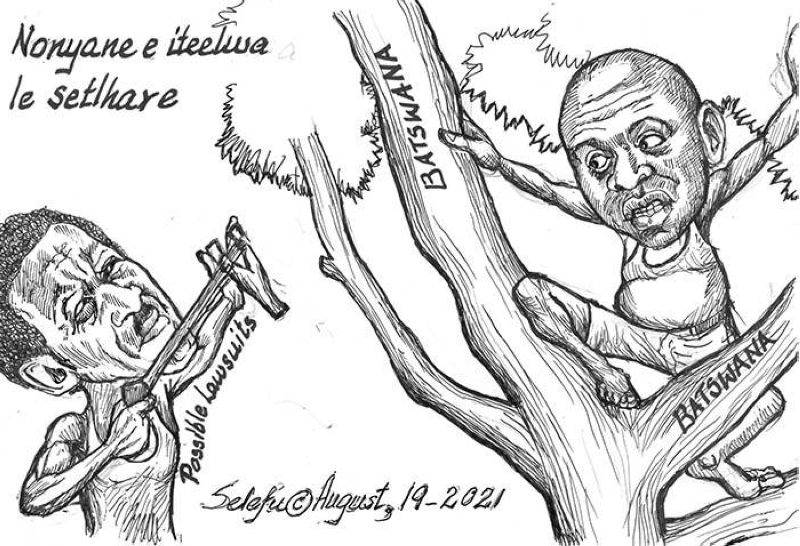 Nonyane e iteelwa
le setlhare
BATSWANA
BATSWANA
Possible Lawsuits
Selefu©August, 19-2021